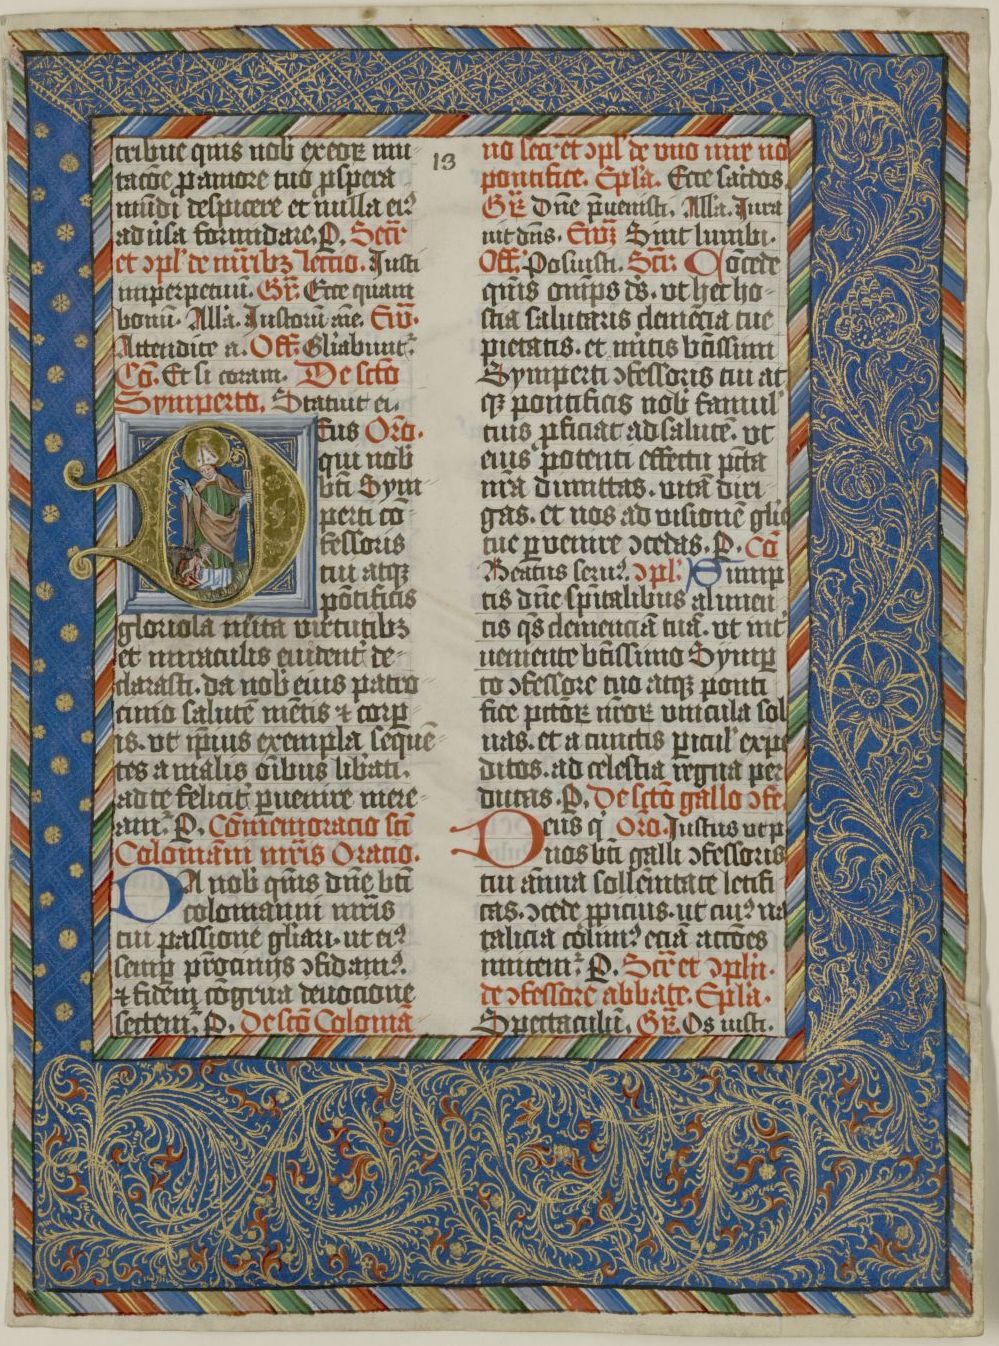 tribue quis nob exeorꝝ mu
tacõe ꝑ amore tuo ꝓspera
mũdi despicere et nulla eiꝰ
aduˀsa formidare. P. Secr̃
et ↄpl̃ de mr̃ibꝫ lectio. Iusti
inperpetuũ. Gr̃. Ecce quam
bonũ. Alla. Iustorũ aĩe. Eũu.
Attendite a. Off. Gl̃iabunt̃.
Cõ. Et si coram. De sc̃to
Symperto. Statuit ei.
Eus Oro.
qui nob
bt̃i Sym
perti cõ
fessoris
tui atqꝫ
põtificis
gloriosa m̃ita virtutibꝫ
et miraculis euident̃ de-
clarasti. da nob eius patro
cinio salutẽ mẽtis ⁊ corꝑ
is. vt ip̃ius exempla sequẽ
tes a malis oĩbus libˀati.
ad te felicitˀ ꝑuenire mere
amr̃. P. Cõmemoracio sc̃i
Colomãni mr̃is Oracio.
DA nob qm̃s dñe bt̃i
colomanni mr̃is
tui passione gl̃iari. ut eiꝰ
semꝑ pr̃ocinijs ↄfidamꝰ.
⁊ fidem cõgrua deuocione
sectemꝰ. P. De sc̃to Colomã
13
no secr̃ et ↄpl̃ de vno mr̃e nõ
pontifice. Epl̃a. Ecce sac̃dos.
Gr̃. Dñe p̃uenisti. Alla. Iura
uit dñs. Eũu. Sint lumbi.
Off. Posuisti. Scr̃. Cõcede
qm̃s om̃ps ds̃. vt hec ho-
stia salutaris clemẽcia tue
pietatis. et m̃itis bt̃issimi
Symperti ↄfessoris tui at
qꝫ pontificis nob famul
tuis ꝓficiat ad salutẽ. vt
eius potenti effectu pc̃ta
nr̃a dimittas. uitã diri
gas. et nos ad uisionẽ gl̃ie
tue ꝑuenire ↄcedas. P. Cõ
Beatus seruꝰ. ↄpl̃. Sump
tis dñe sp̃italibus alimen
tis qs̃ clemenciã tuã. vt int̃
ueniente bt̃issimo Symꝑ
to ↄfessore tuo atqꝫ ponti
fice pc̃torꝝ nr̃orꝝ vincula sol
uas. et a cunctis ꝑicul̃ expe
ditos. ad celestia regna per
ducas. P. De sc̃to gallo ↄfe.
Deus q̃ Oro. Iustus ut p
nos bt̃i galli ↄfessoris
tui ãnua sollẽnitate letifi
cas. ↄcede ꝓpicius. ut cuiꝰ na
talicia colimꝰ eciã acc̃ões
imitemꝰ. P. Scr̃ et ↄplñ.
de ↄfessore abbate. Epl̃a.
Spectaculũ. Gr̃. Os iusti.